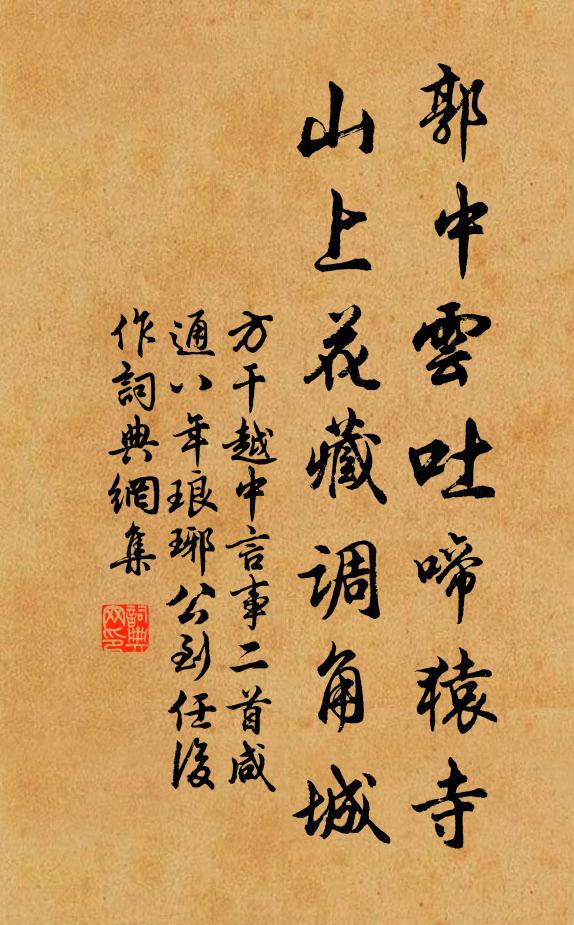 郭中雲吐啼猿寺
山上花藏调角城
方干越中言事二首咸
通八年琅琊公到任後
作詞典網集
詞典网印